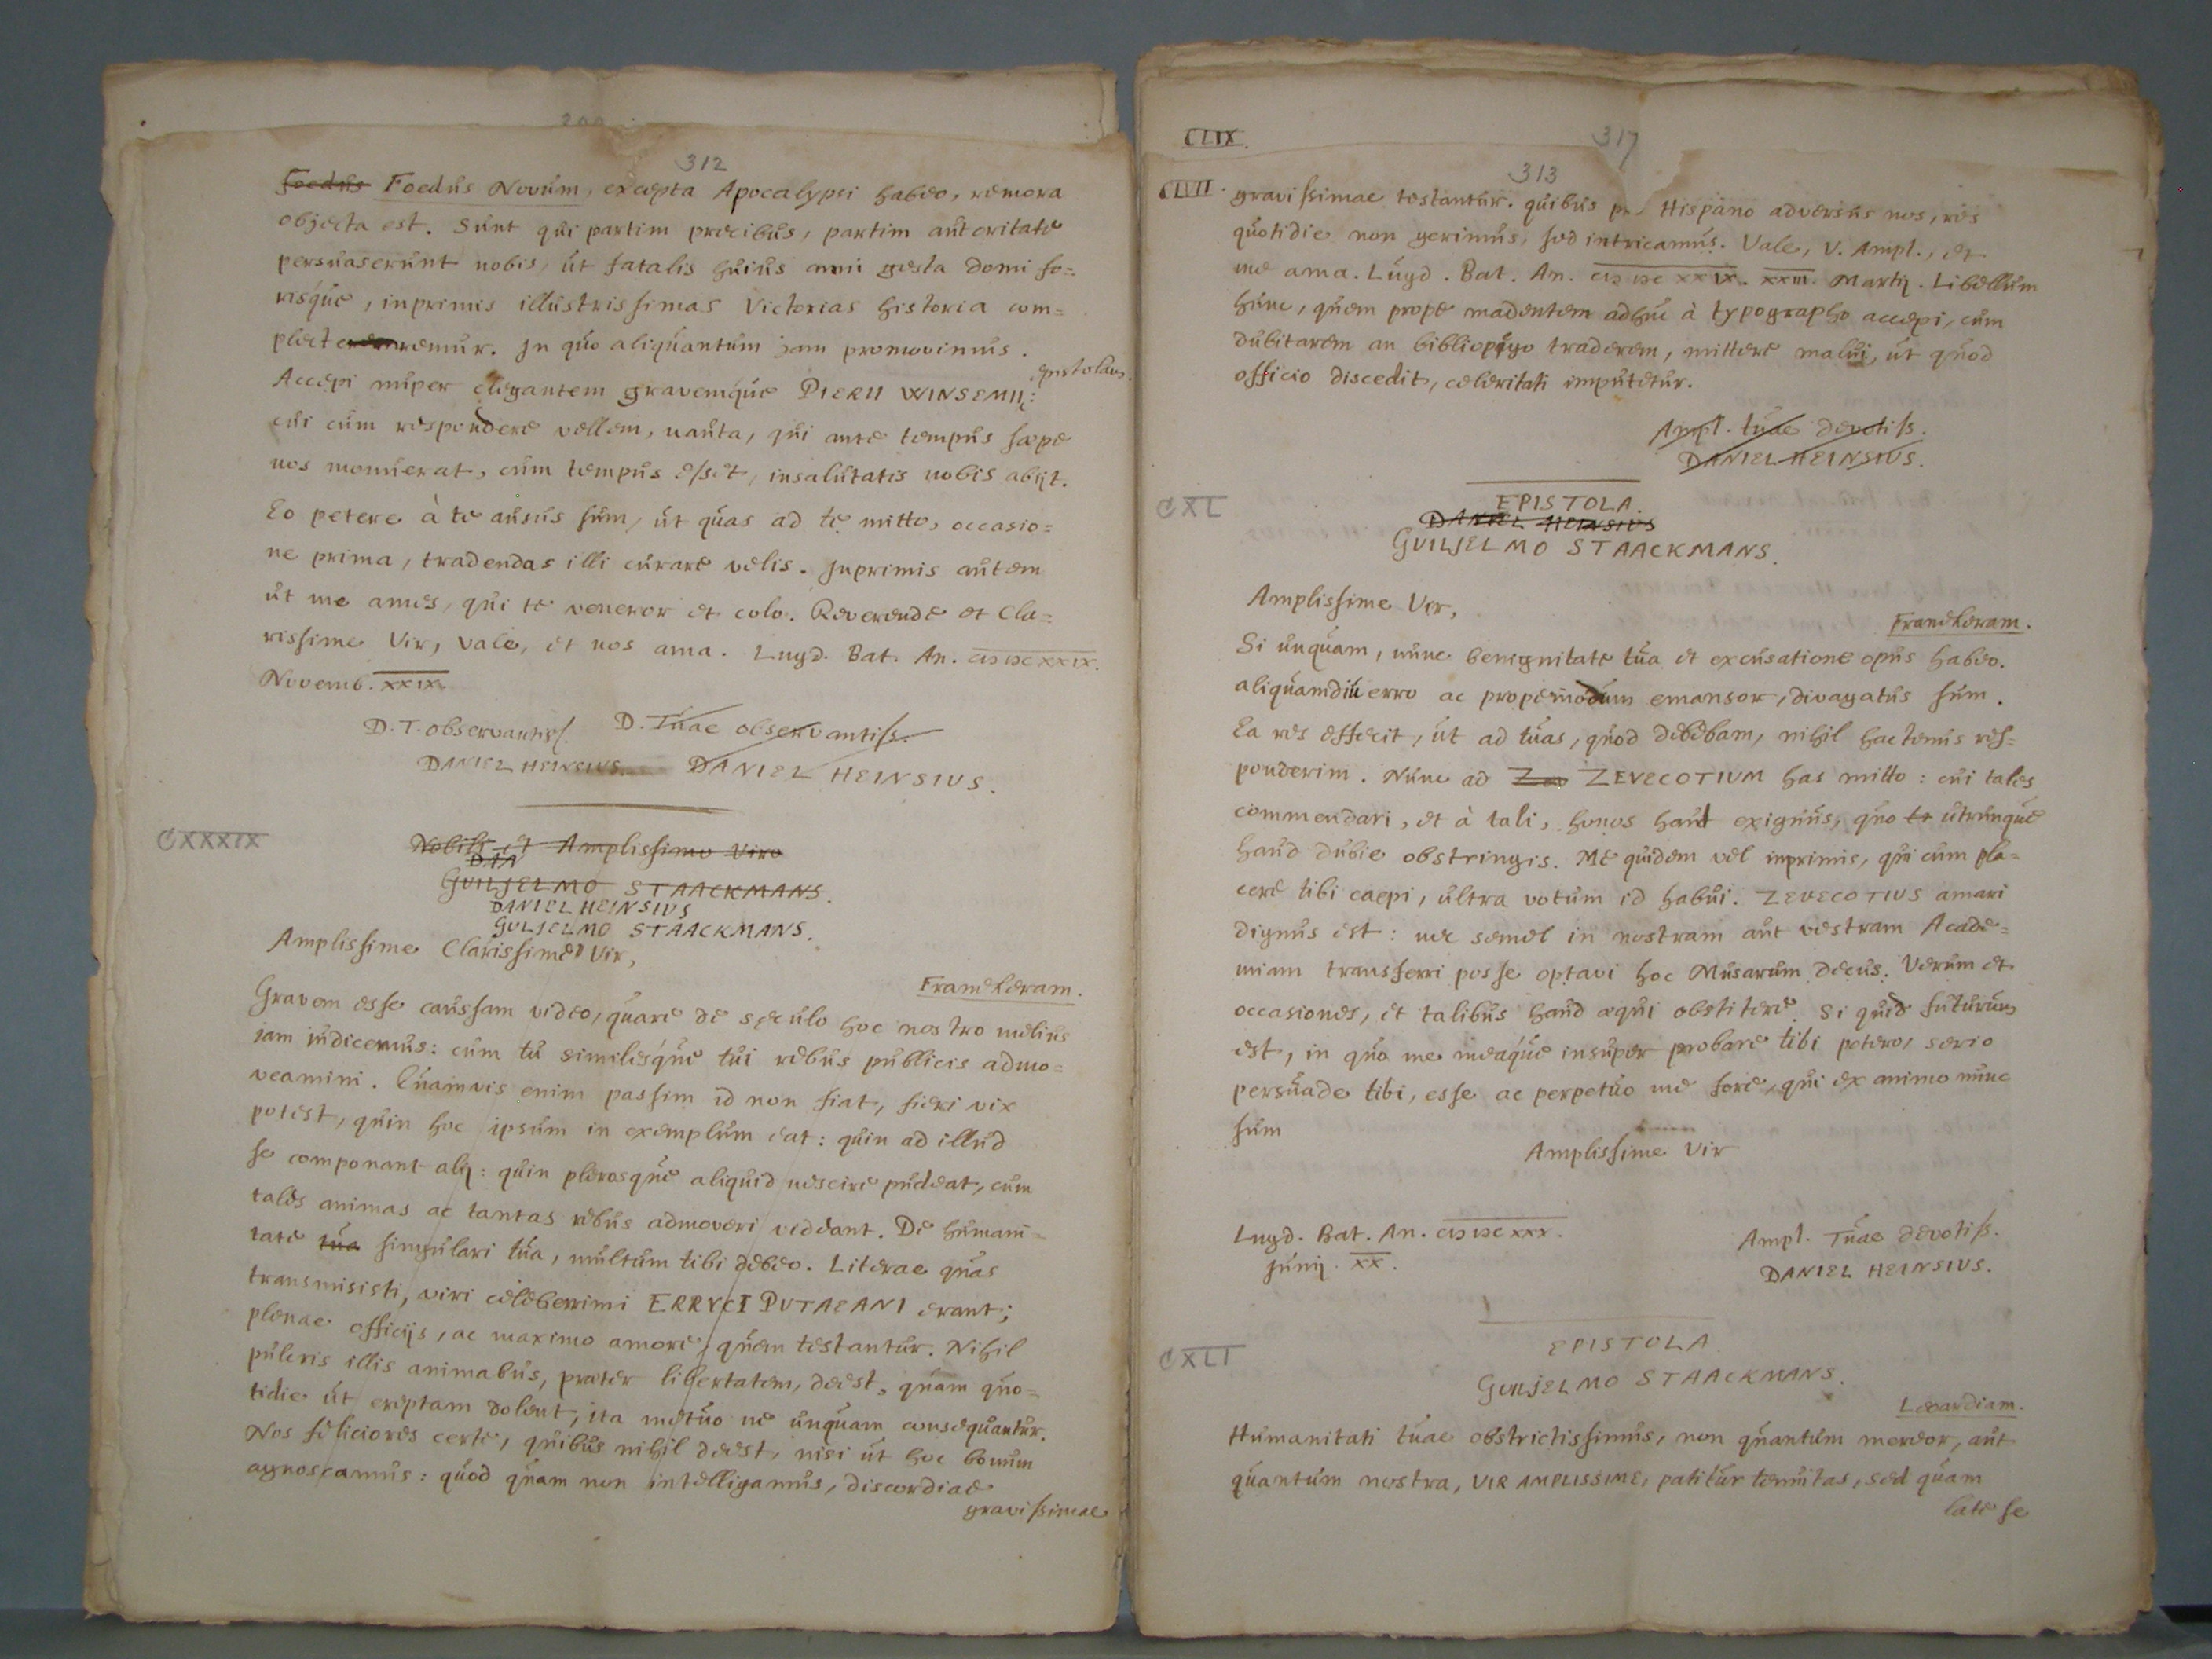 312
Foedus Foedus Novum, excepta Apocalypsi habeo, remora
objecta est. Sunt qui partim precibus, partim autoritate
persuaserunt nobis, ut fatalis huius anni gesta domi fo=
risque, inprimis illustrissimas Victorias historia com=
plecteremur. In quo aliquantum jam promovimus.
epistolam.
Accepi nuper elegantem gravemque PIERII WINSEMII:
cui cum respondere vellem, nauta, qui ante tempus sæpe
nos monuerat, cum tempus esset, insalutatis nobis abijt.
Eo petere à te ausus sum, ut quas ad te mitto, occasio=
ne prima, tradendas illi curare velis. Inprimis autem
ut me ames, qui te veneror et colo. Reverende et Cla=
rissime Vir, vale, et nos ama. Lugd. Bat. An. CIƆ IƆC XXIX.
Novemb. XXIX.
D. T. observantiss. D. Tuae observantiss.
DANIEL HEINSIUS. DANIEL HEINSIUS.
CXXXIX
Nobili et Amplissimo Viro
DAN
GUILJELMO STAACKMANS.
DANIEL HEINSIUS
GULJELMO STAACKMANS.
Amplissime Clarissime Vir,
Franekeram.
Gravem esse caussam video, quare de seculo hoc nostro melius
jam judicemus: cum tu similesque tui rebus publicis admo=
veamini. Quamvis enim passim id non fiat, fieri vix
potest, quin hoc ipsum in exemplum eat: quin ad illud
se componant alij: quin plerosque aliquid nescire pudeat, cum
tales animas ac tantas rebus admoveri videant. De humani=
tate tua singulari tua, multum tibi debeo. Literae quas
transmisisti, viri celeberrimi ERRYCI PUTAEANI erant;
plenae officijs, ac maximo amore, quem testantur. Nihil
pulcris illis animabus, praeter libertatem, deest, quam quo=
tidie ut ereptam dolent, ita metuo ne unquam consequantur.
Nos feliciores certe, quibus nihil deest, nisi ut hoc bonum
agnoscamus: quod quam non intelligamus, discordiae
gravissimae
CLIX.
317
313
CLVII.
gravissimae testantur. quibus Hispano adversus nos, res
quotidie non gerimus, sed intricamus. Vale, V. Ampl., et
me ama. Lugd. Bat. An. CIƆ IƆC XXIX. XXIII. Martij. Libellum
hunc, quem prope madentem adhuc à typographo accepi, cum
dubitarem an bibliopego traderem, mittere malui, ut quod
officio discedit, celeritati imputetur.
Ampl. tuae devotiss.
DANIEL HEINSIUS.
CXL
EPISTOLA.
DANIEL HEINSIUS
GUILJELMO STAACKMANS.
Amplissime Vir,
Franekeram.
Si unquam, nunc benignitate tua et excusatione opus habeo.
aliquamdiu erro ac propemodum emansor, divagatus sum.
Ea res effecit, ut ad tuas, quod debebam, nihil hactenus res=
ponderim. Nunc ad Zev ZEVECOTIUM has mitto: cui tales
commendari, et à tali, honos haud exiguus, quo te utrunque
haud dubie obstringis. Me quidem vel inprimis, qui cum pla=
cere tibi caepi, ultra votum id habui. ZEVECOTIUS amari
dignus est: nec semel in nostram aut vestram Acade=
miam transferri posse optavi hoc Musarum decus. Verum et
occasiones, et talibus haud aequi obstitere. Si quid futurum
est, in quo me meaque insuper probare tibi potero, serio
persuade tibi, esse ac perpetuo me fore, qui ex animo nunc
sum
Amplissime Vir
Lugd. Bat. An. CIƆ IƆC XXX.
Junij. XX.
Ampl. Tuae devotiss.
DANIEL HEINSIUS.
CXLI
EPISTOLA
GUILJELMO STAACKMANS.
Leoardiam.
Humanitati tuae obstrictissimus, non quantum mereor, aut
quantum nostra, VIR AMPLISSIME, patitur tenuitas, sed quam
late se